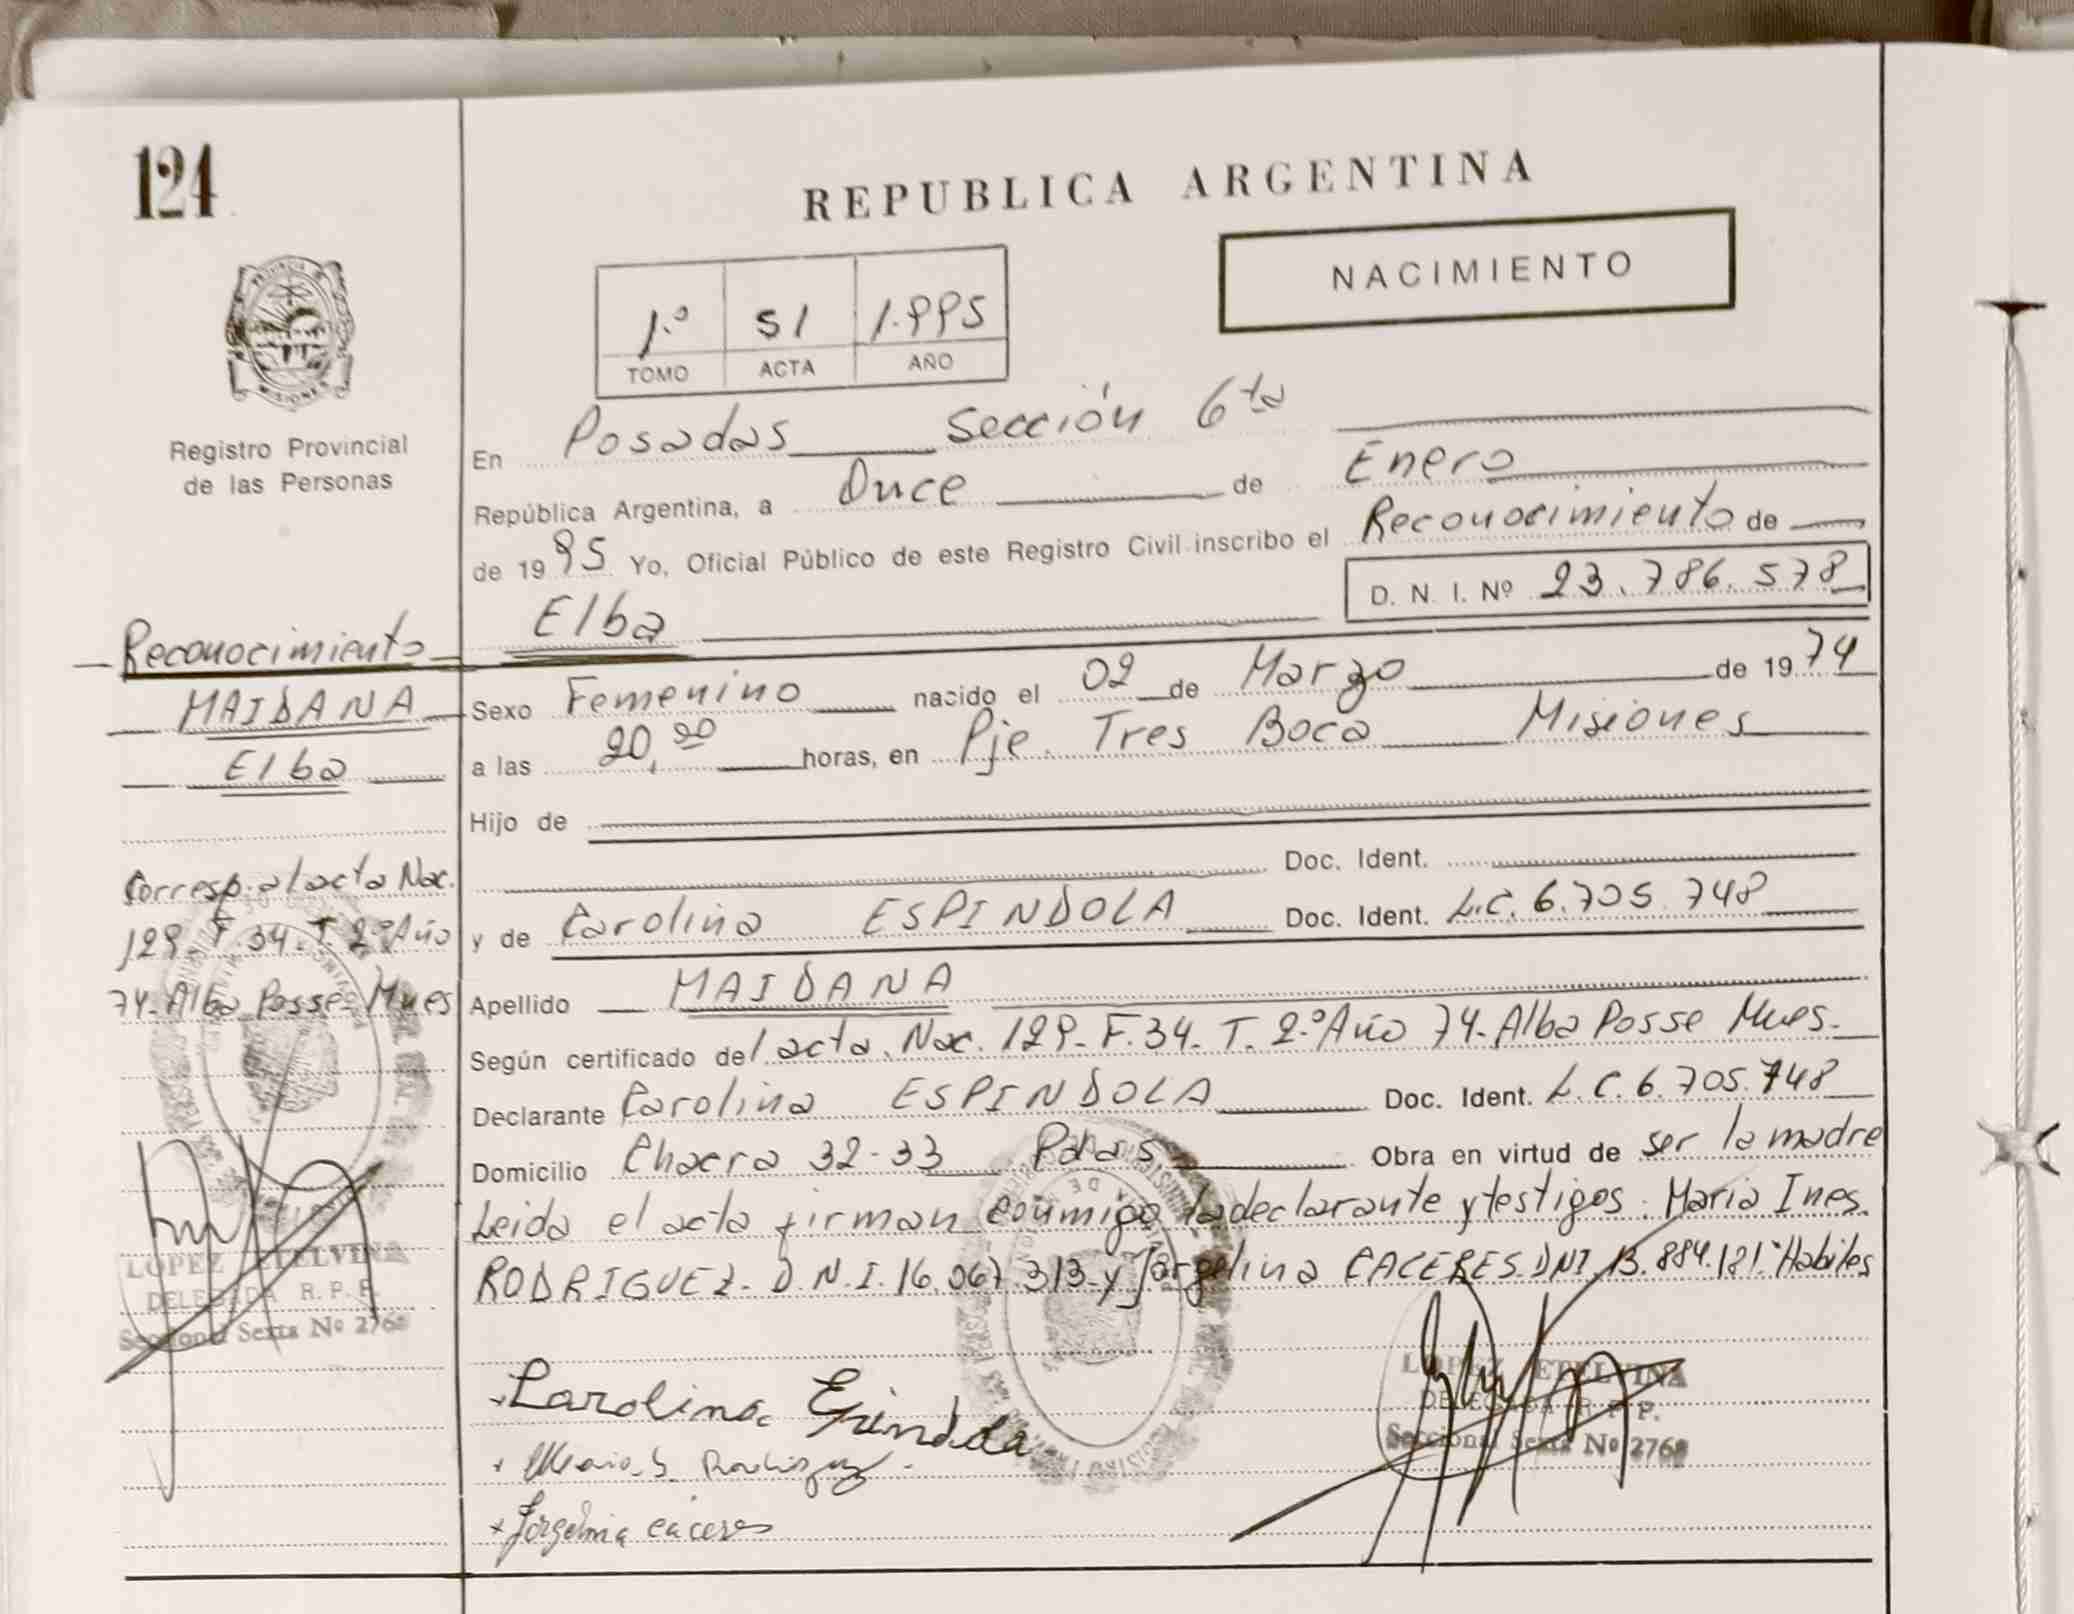 124
REPUBLICA ARGENTINA
NACIMIENTO
1.º 51 1.995
TOMO ACTA AÑO
Registro Provincial
de las Personas
En Posadas Sección 6ta
República Argentina, a Once de Enero
de 1995 Yo, Oficial Público de este Registro Civil inscribo el Reconocimiento de
D. N. I. Nº 23.786.578
Elba
Reconocimiento
MAIDANA
Elba
Corresp. al acta Nac.
129 F. 34. T. 2º Año
74. Alba Posse Mnes
LOPEZ ETELVINA
DELEGADA R. P. P.
Seccional Sexta Nº 276
Sexo Femenino nacido el 02 de Marzo de 1974
a las 20,20 horas, en Pje. Tres Boca Misiones
Hijo de
Doc. Ident.
y de Carolina ESPINDOLA Doc. Ident. L.C. 6.705.748
Apellido MAIDANA
Según certificado del acta. Nac. 129. F. 34. T. 2.º Año 74. Alba Posse Mnes.
Declarante Carolina ESPINDOLA Doc. Ident. L.C. 6.705.748
Domicilio Chacra 32-33 Pdas Obra en virtud de ser la madre
Leida el acta firman conmigo la declarante y testigos. Maria Ines.
RODRIGUEZ. D.N.I. 16.067.313 y Jorgelina CACERES. DNI 13.884.121. Habiles
Carolina Epindola
Maria I. Rodriguez
Jorgelina caceres
LOPEZ ETELVINA
DELEGADA R. P. P.
Seccional Sexta Nº 276